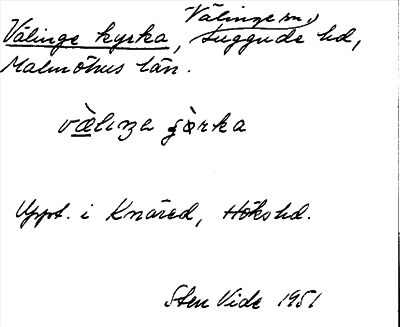 Välinge sn,
Välinge kyrka, Luggude hd,
Malmöhus län.
vä̀liŋə ʝä̀rka
Uppt. i Knäred, Höks hd.
Sten Vide 1951